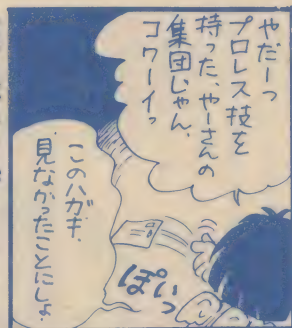 やだーっ
プロレス技を
持った、やーさんの
集団じゃん。
コワーイっ
このハガキ、
見なかったことにしよ。
ぽいっ